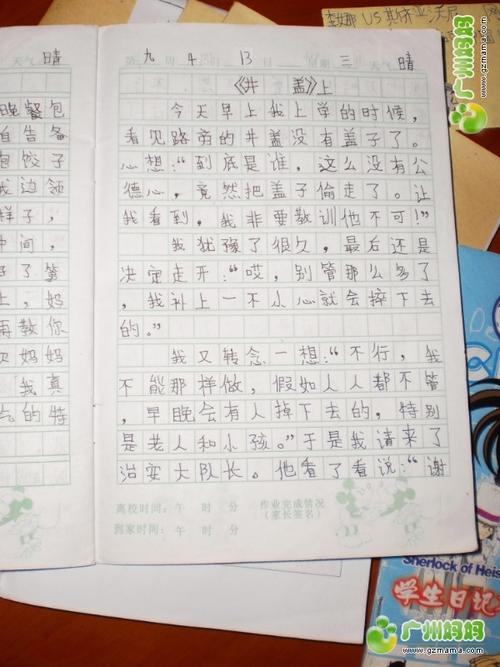 天气 晴
晚餐包
自告备
包饺子
我边领
样子，
中间，
上，妈
再教你
我真
气的特
第九周 4 月 13 日 星期三 天气 晴
《井盖》上
今天早上我上学的时候，
看见路旁的井盖没有盖子了。
心想：“到底是谁，这么没有公
德心，竟然把盖子偷走了。让
我看到，我非要教训他不可！”
我犹豫了很久，最后还是
决定走开：“哎，别管那么多了
，我补上一不小心就会摔下去
的。”
我又转念一想：“不行，我
不能那样做，假如人人都不管
，早晚会有人掉下去的，特别
是老人和小孩。”于是我请来了
治安大队长。他看了看说：“谢
离校时间： 午 时 分 作业完成情况
到家时间： 午 时 分 （家长签名）
李娜 US
妈妈
广州
www.gzmama.com
Sherlock of Heis
学生日记
广州妈妈
www.gzmama.com